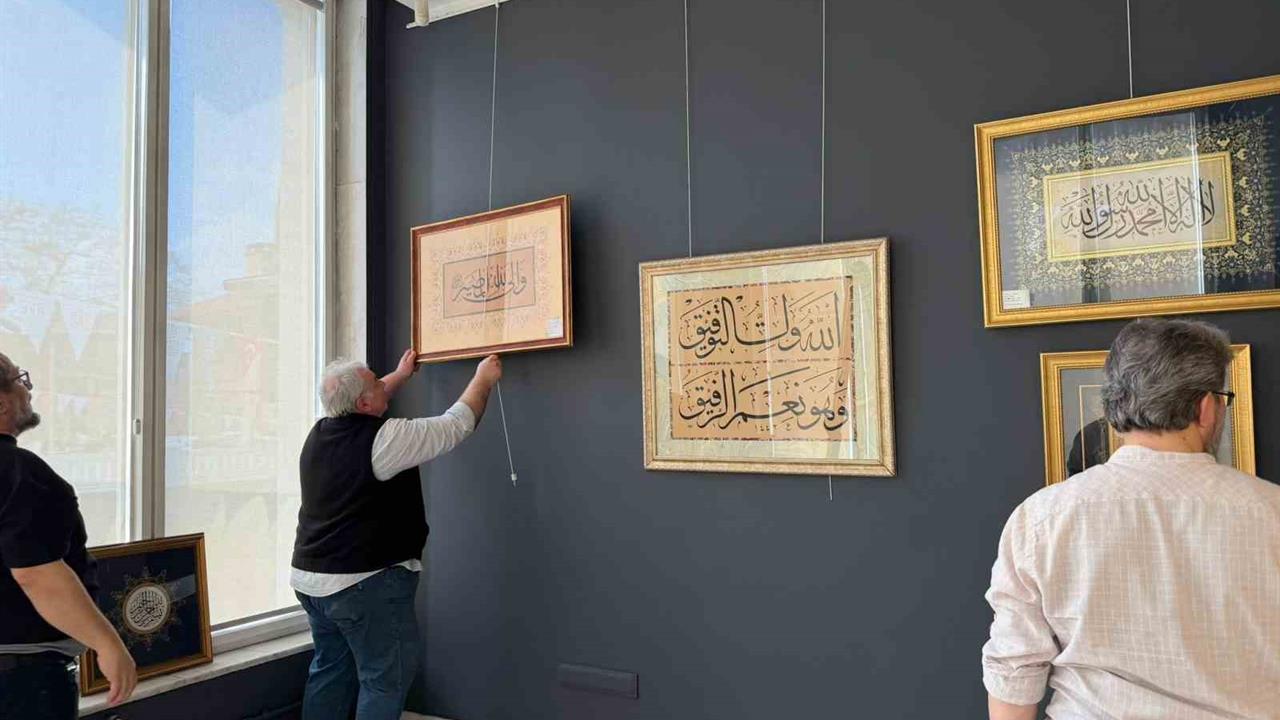 والى الله المصير
الله ولى التوفيق
وهو نعم الرفيق
لا اله الا الله محمد رسول الله